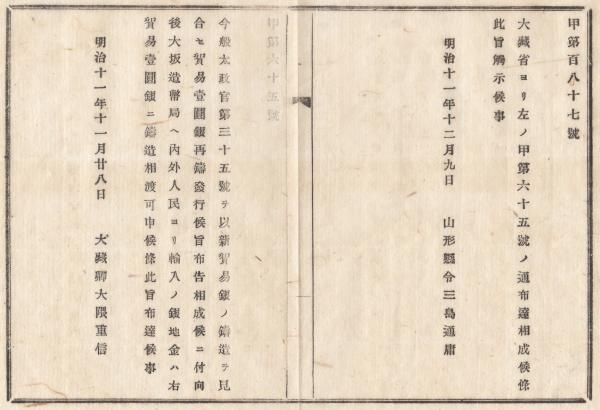 甲第百八十七號
大藏省ヨリ左ノ甲第六十五號ノ通布達相成候條
此旨觸示候事
明治十一年十二月九日　山形縣令三島通庸
甲第六十五號
今般太政官第三十五號ヲ以新貿易銀ノ鑄造ヲ見
合セ貿易壹圓銀再鑄發行候旨布告相成候ニ付向
後大坂造幣局ヘ內外人民ヨリ輸入ノ銀地金ハ右
貿易壹圓銀ニ鑄造相渡可申候條此旨布達候事
明治十一年十一月廿八日　大藏卿大隈重信